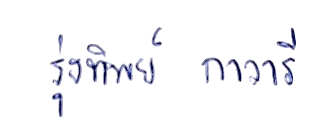 รุ่งทิพย์ กาวารี